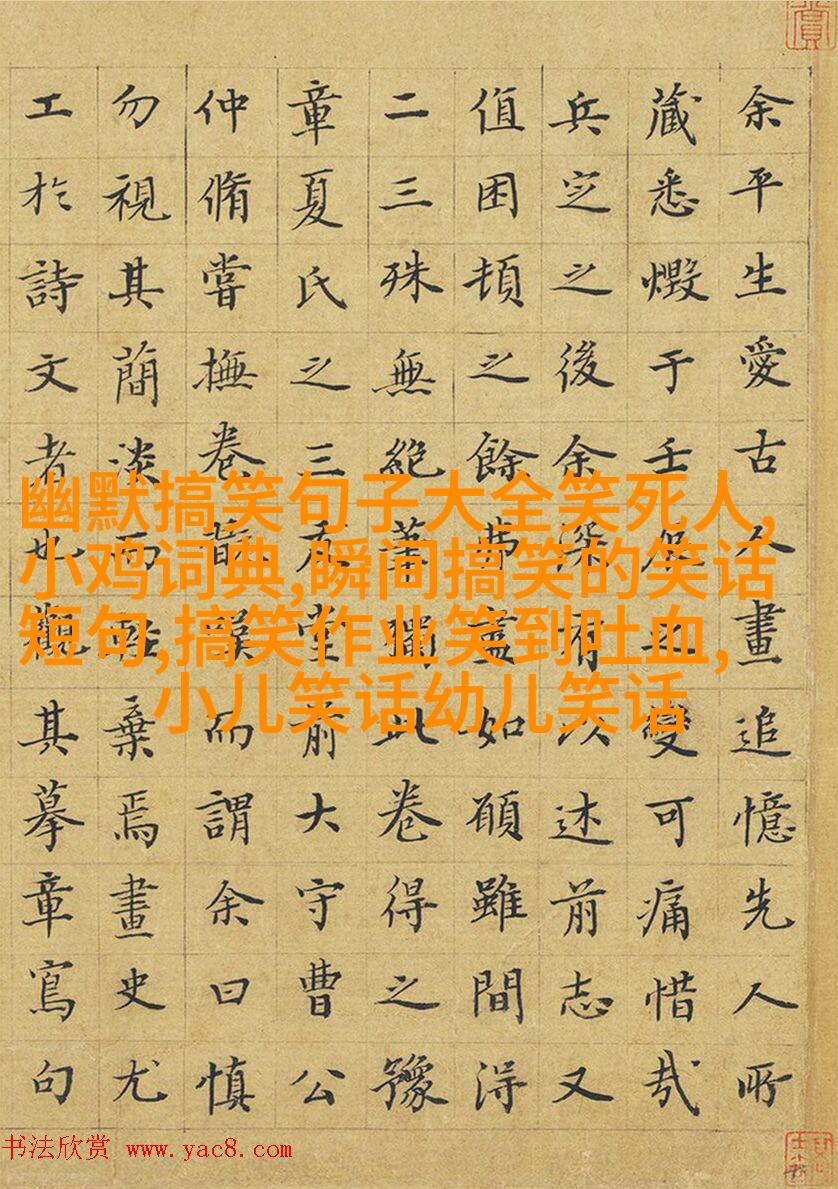 余平生愛古人畫追憶先人所
藏悉燬于壬辰之變可痛惜哉
兵定之後余深有以述前志又
值困頓之餘弗盡如願雖間得
二三殊無絕筆獨此卷得之豫
章夏氏之三堂前大守曹公
仲脩嘗撫卷嘆而謂余曰慎
勿視其簡淡而輕棄焉畫史尤
工於詩文者也觀其摹章寫句
幽默搞笑句子大全笑死人,
小鸡词典,瞬间搞笑的笑话
短句,搞笑作业笑到吐血,
小儿笑话幼儿笑话
书法欣赏 www.yac8.com